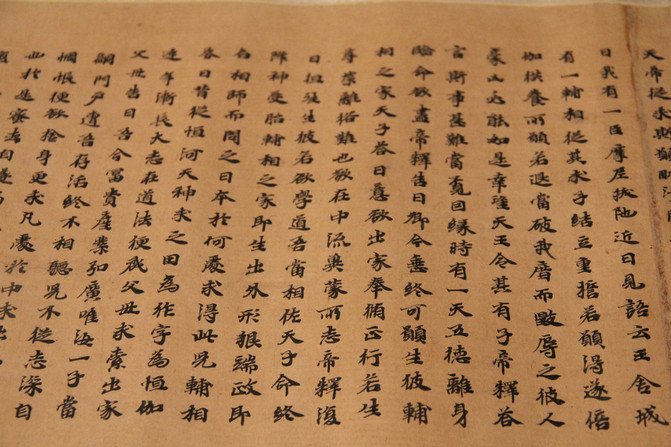 天帝從求其願
曰我有一臣摩尼拔陁近日見語云王舍城
有一輔相從其求子結立重擔若願得遂倍
伽供養所願若違當破我廟而毀辱之彼人
豪凶必能如是幸望天王令其有子帝釋答
言斯事甚難當覓因緣時有一天五德離身
臨命欲盡帝釋告曰卿今垂終可願生彼輔
相之家天子答曰意欲出家奉修正行若生
尊榮離俗難也欲在中流冀蒙所志帝釋復
曰但生彼若欲學道吾當相佐天子命終
降神受胎輔相之家即生出外形貌端政即
召相師而問之曰本於何處求得此兒輔相
答曰昔從恒河天神求之因為作字為恒伽
達年漸長大志在道法便啟父母求索出家
父母告曰吾今富貴產業弘廣唯汝一子當
嗣門戶遺吾存活終不相聽兒不從志深自
惆悵便欲捨身更求凡處於中求出
此於是密去自墜